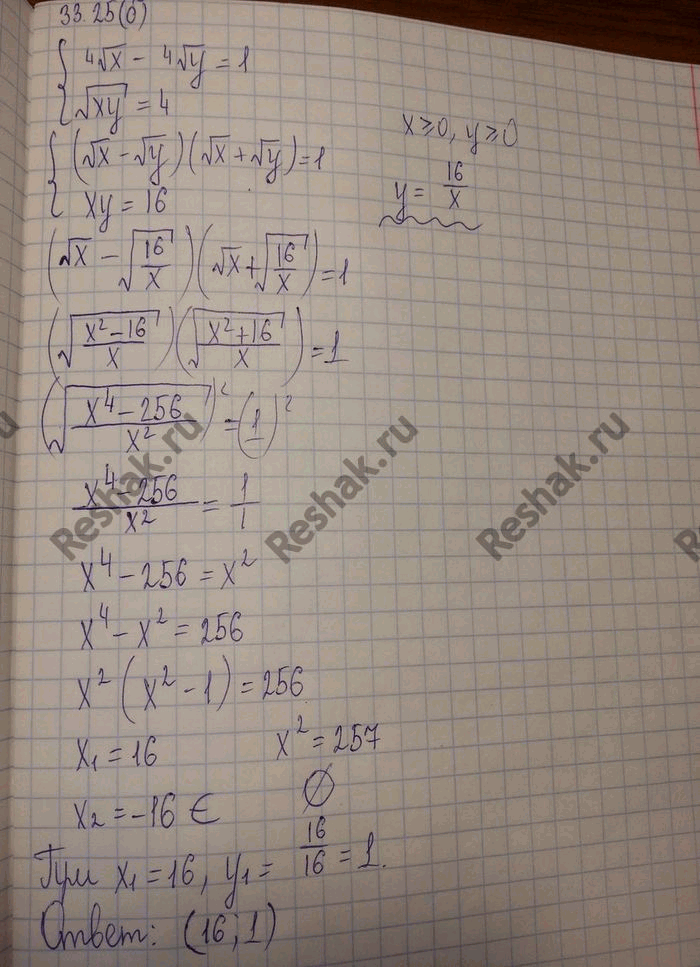 33.25(б)
{ ⁴√x - ⁴√y = 1
{ √xy = 4
x ≥ 0, y ≥ 0
{ (√x - √y)(√x + √y) = 1
{ xy = 16
y = 16/x
(√x - √(16/x))(√x + √(16/x)) = 1
(√((x² - 16)/x))(√((x² + 16)/x)) = 1
(√((x⁴ - 256)/x²))² = (1)²
(x⁴ - 256)/x² = 1/1
x⁴ - 256 = x²
x⁴ - x² = 256
x² (x² - 1) = 256
x₁ = 16 x² = 257
x₂ = -16 ∈ ∅
При x₁ = 16, y₁ = 16/16 = 1.
Ответ: (16; 1)
Reshak.ru
Reshak.ru
Reshak.ru